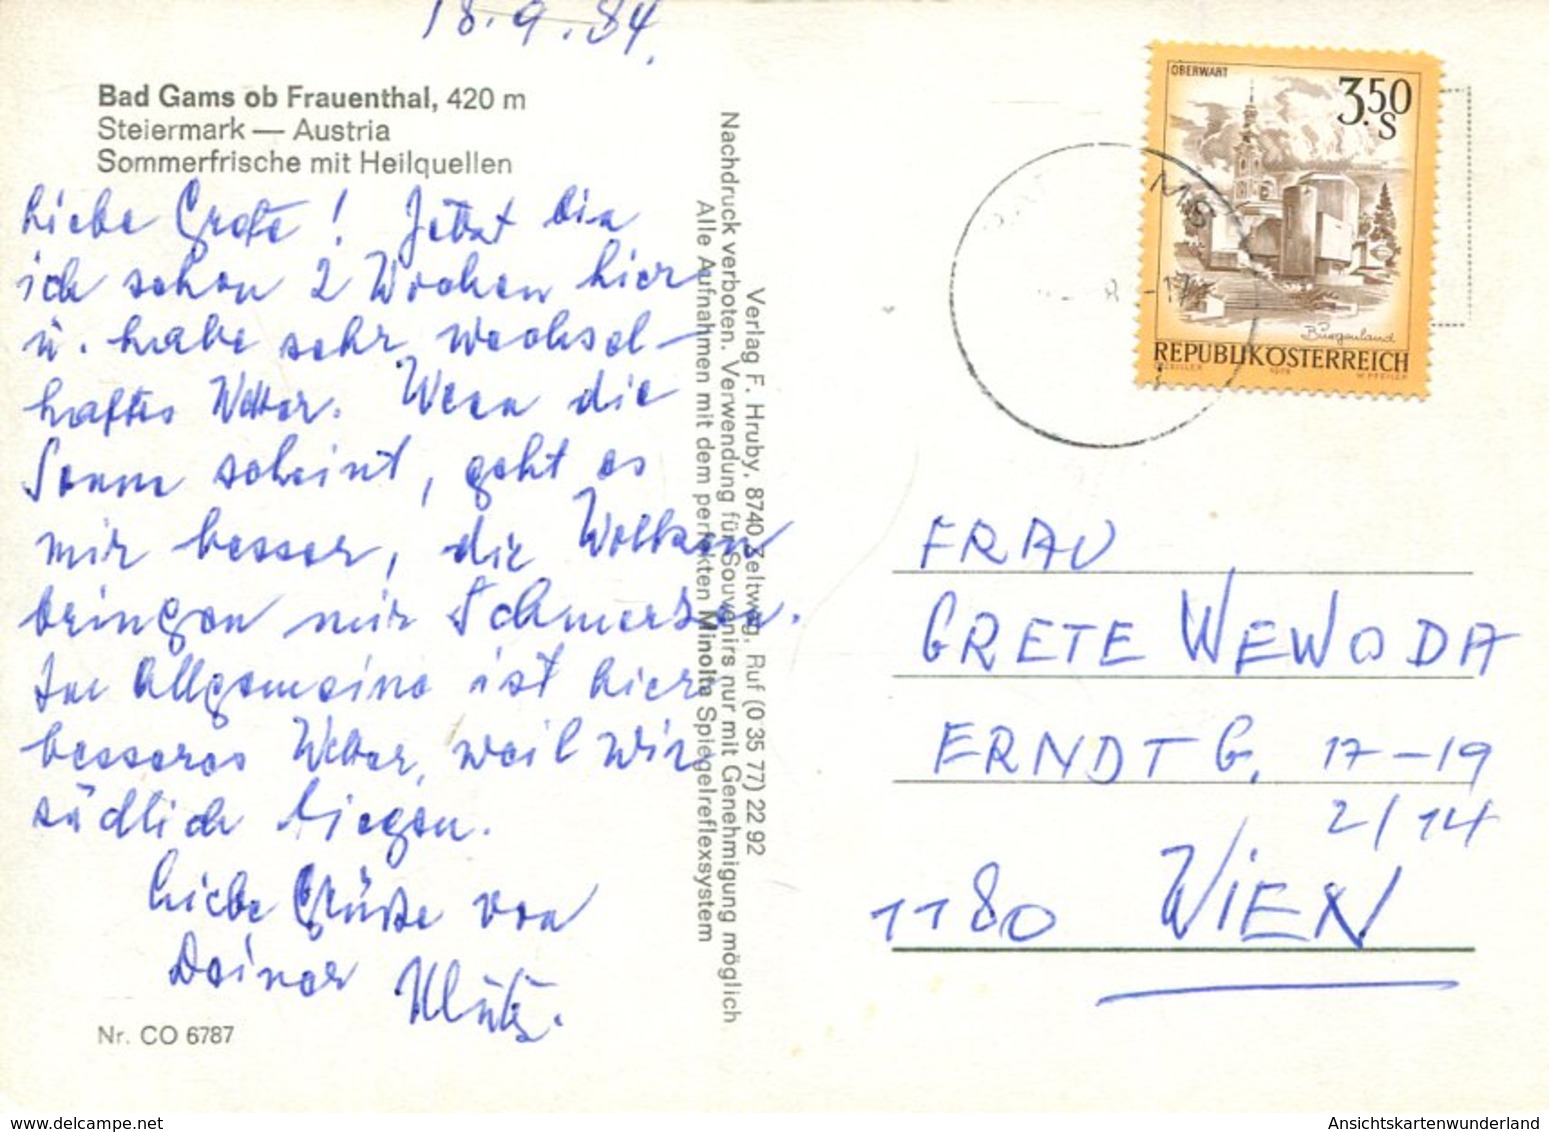 18.9.84.
Bad Gams ob Frauenthal, 420 m
Steiermark — Austria
Sommerfrische mit Heilquellen
Liebe Grete! Jetzt bin
ich schon 2 Wochen hier
u. habe sehr wechsel-
haftes Wetter. Wenn die
Sonne scheint, geht es
mir besser, die Wolken
bringen mir Schmerzen.
Im Allgemeinen ist hier
besseres Wetter, weil wir
südlich liegen.
Liebe Grüße von
Deiner
Nr. CO 6787
Verlag F. Hruby, 8740 Zeltweg, Ruf (0 35 77) 22 92
Nachdruck verboten. Verwendung für Souvenirs nur mit Genehmigung möglich
Alle Aufnahmen mit dem perfekten Minolta Spiegelreflexsystem
OBERWART
3.50
S
Burgenland
REPUBLIK ÖSTERREICH
FRAU
GRETE WEWODA
ERNDTG. 17-19
2/14
1180 WIEN
Ansichtskartenwunderland
www.delcampe.net